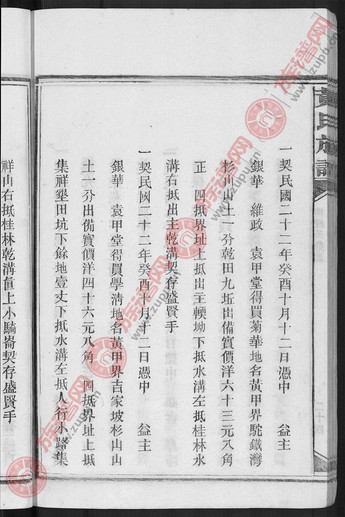 一契民國二十二年癸酉十月十二日憑中 益主
銀華 維政 袁甲堂得買菊華地名黃甲界駝鐵灣
杉山山土一分乾田九坵出備實價洋六十三元八角
正 四抵界址上抵出主轅坳下抵水溝左抵桂林水
溝右抵出主乾溝契存盛賢手
一契民國二十二年癸酉十月十二日憑中 益主
銀華 袁甲堂得買學清地名黃甲界吉家坡杉山山
土一分出備實價洋四十六元八角 四抵界址上抵
集祥墾田坑下餘地壹丈下抵水溝左抵人行小路集
祥山右抵桂林乾溝直上小騸崙契存盛賢手
氏族譜
族譜网
www.zupu.cn